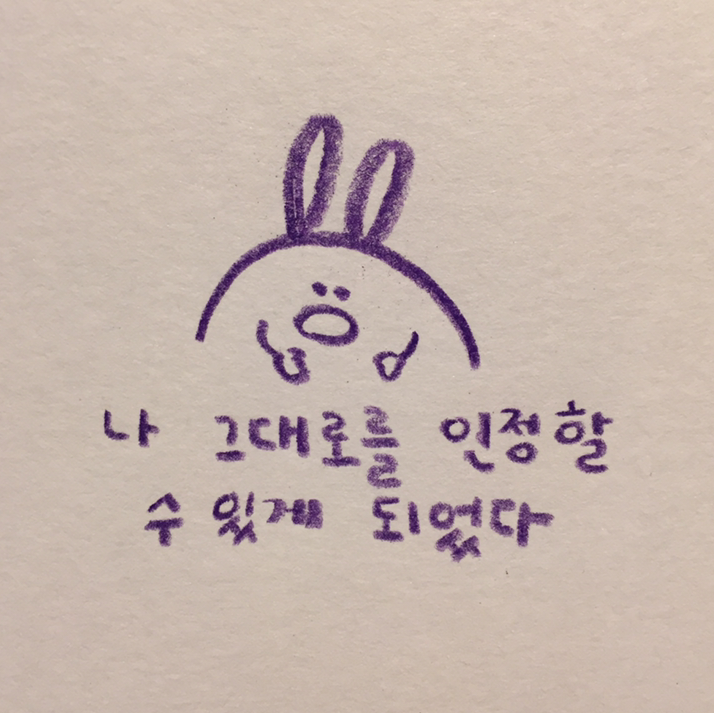 나 그대로를 인정할
수 있게 되었다